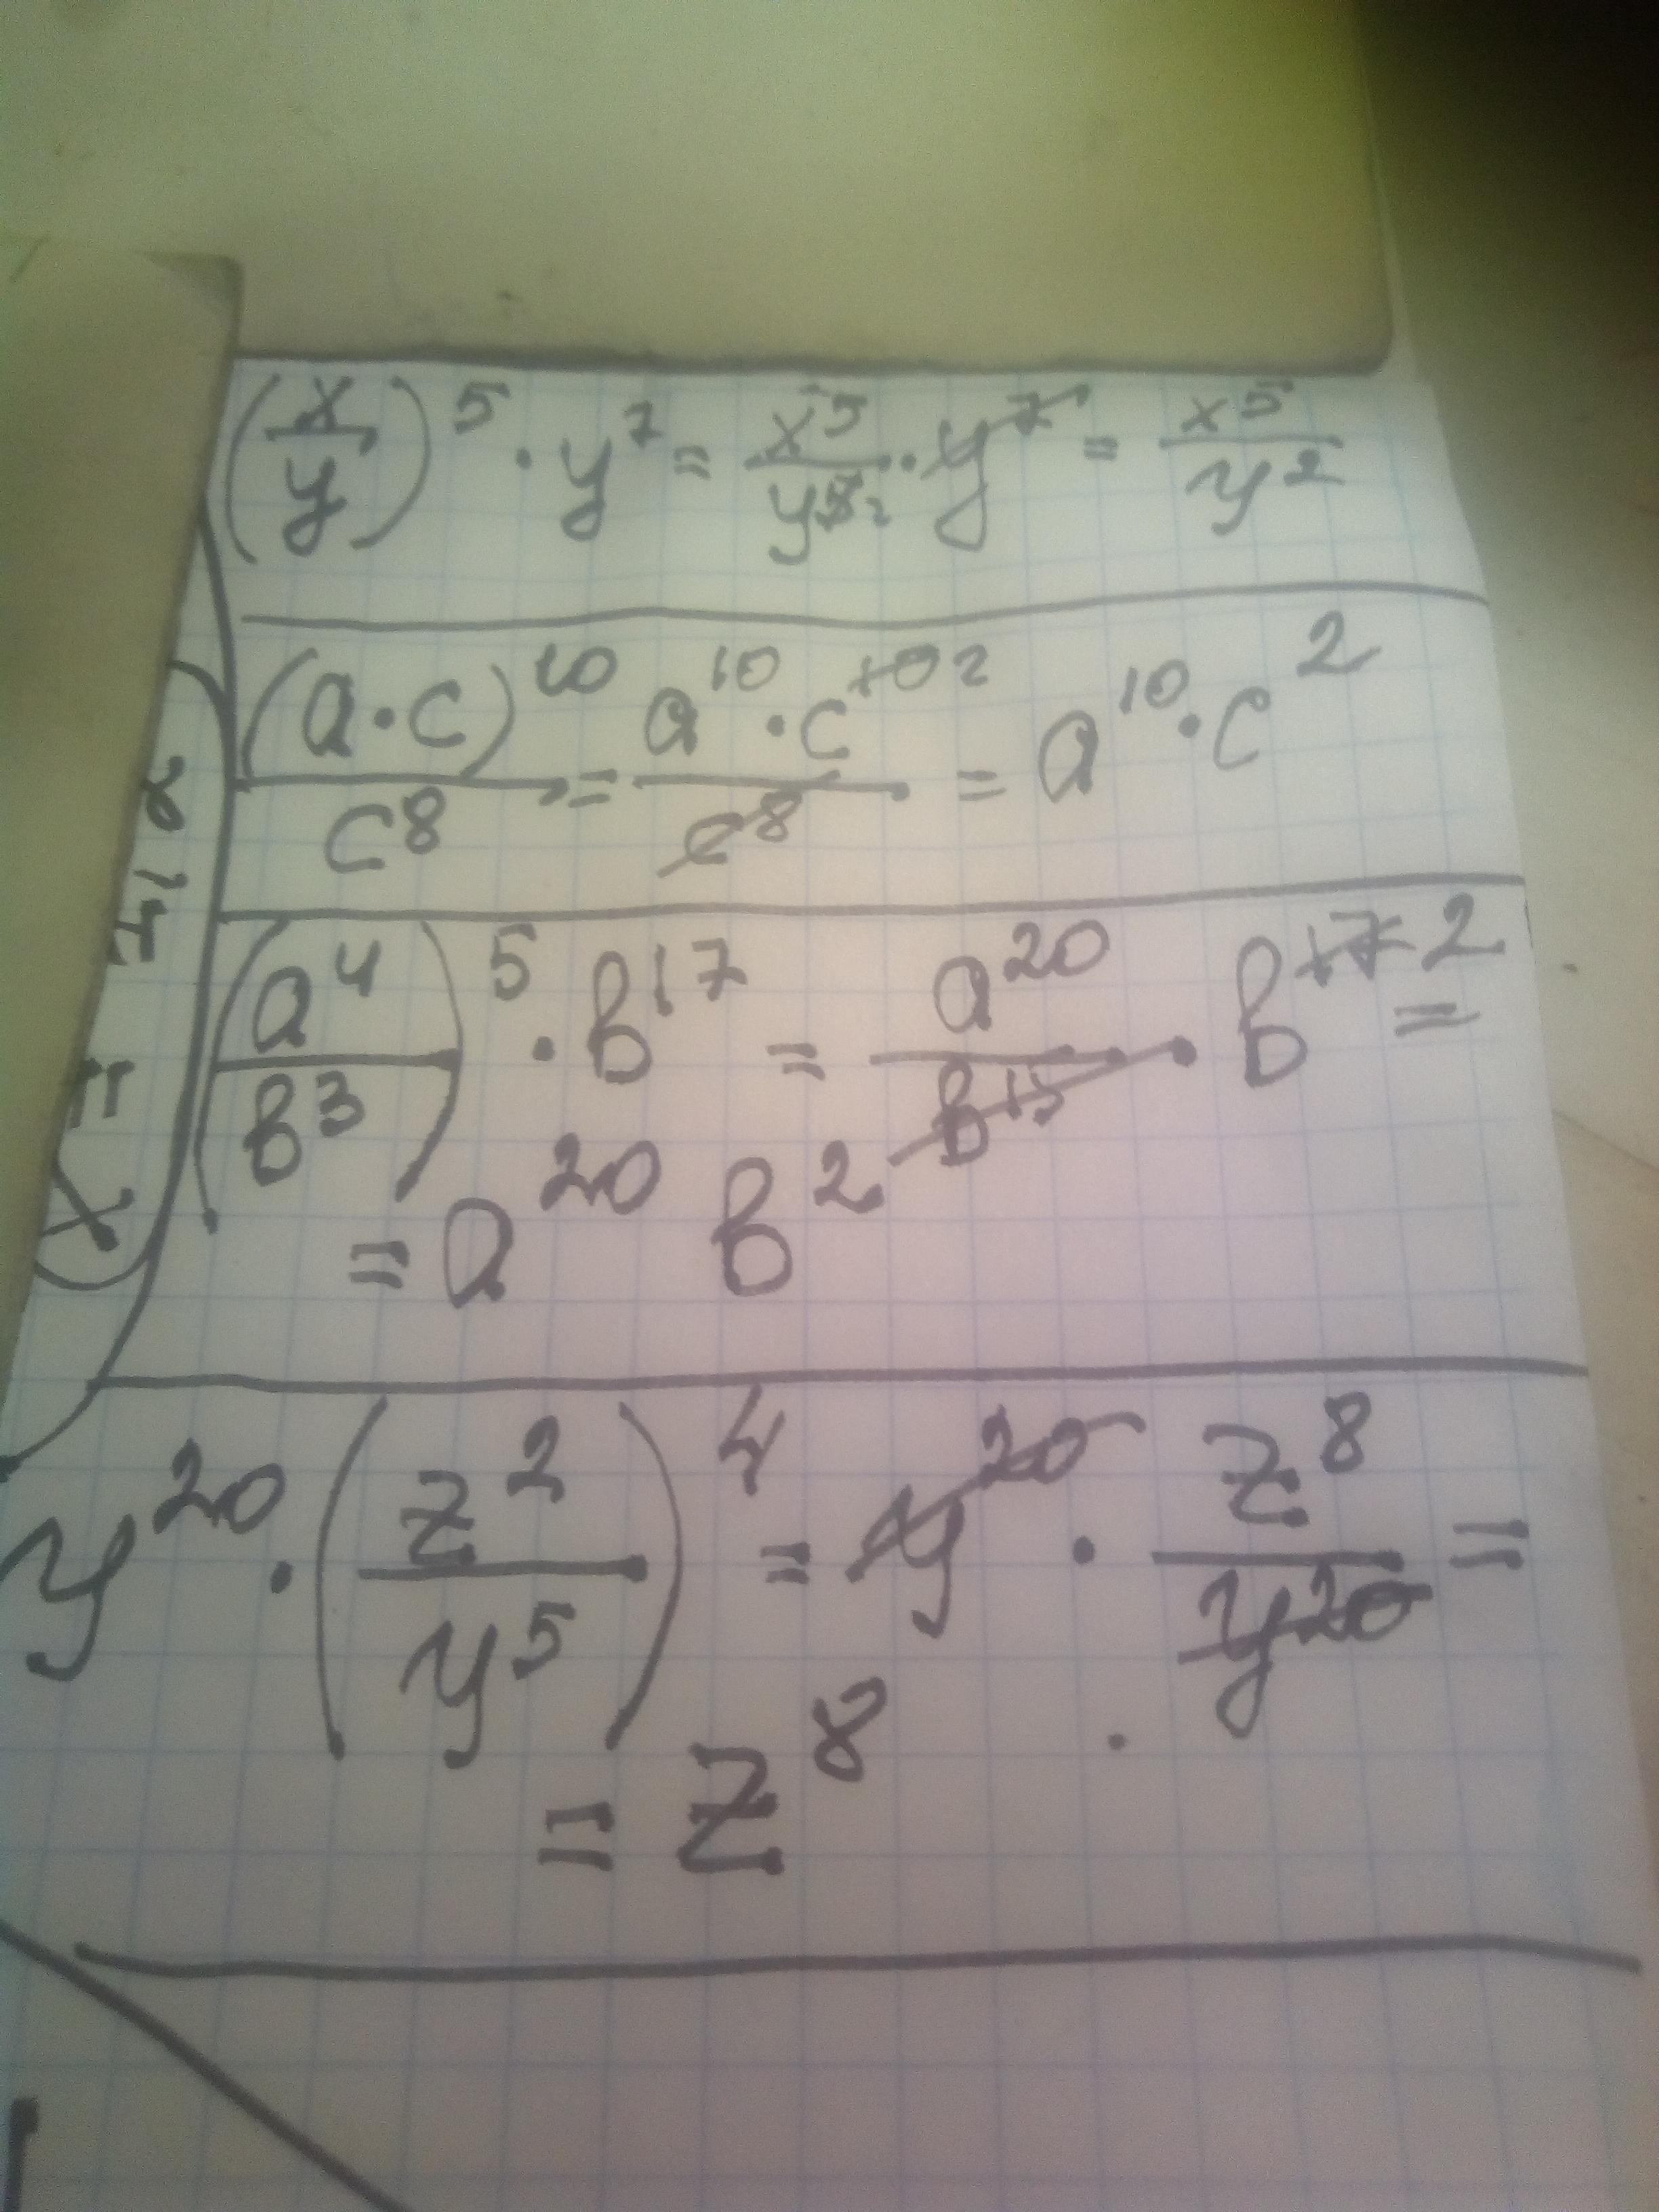 (x/y)^5 · y^7 = x^5/y^5 2 · y^7 = x^5/y^2
(a·c)^10/c^8 = a^10·c^10 2/c^8 = a^10·c^2
(a^4/b^3)^5 · b^17 = a^20/b^15 · b^17 2 =
= a^20 b^2
y^20 · (z^2/y^5)^4 = y^20 · z^8/y^20 =
= z^8